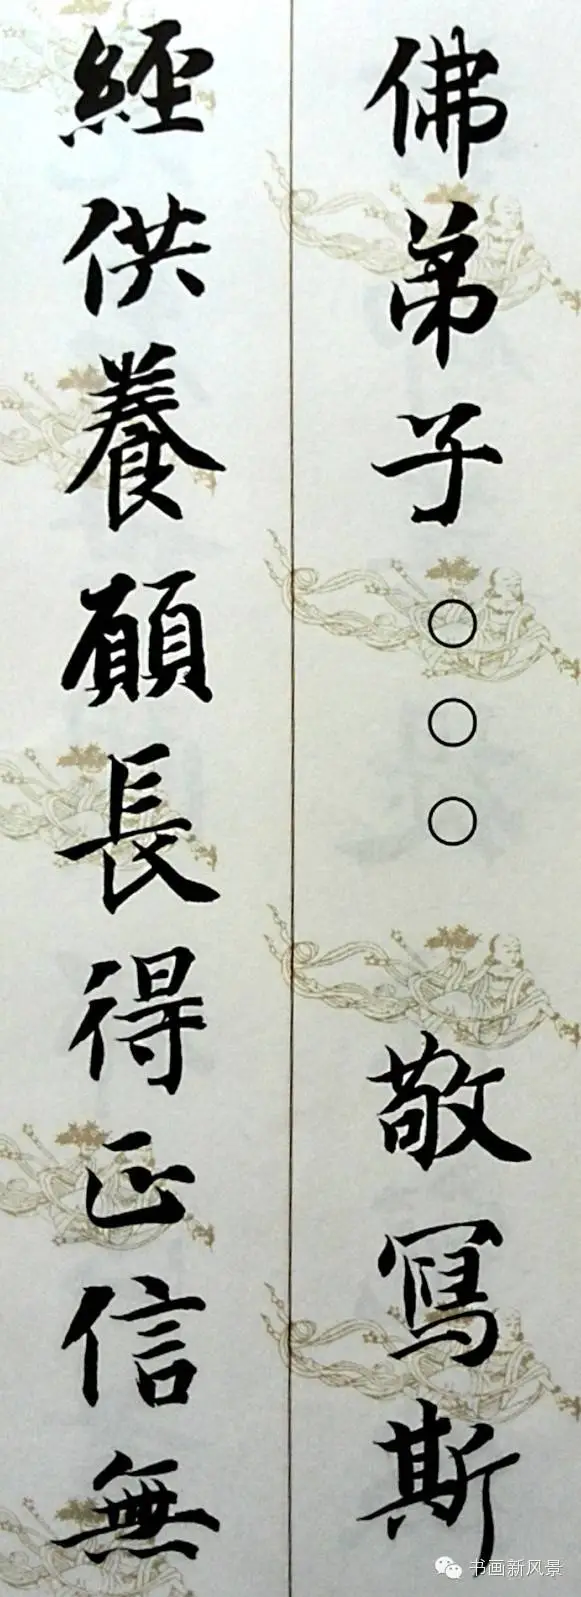 佛弟子○○○敬寫斯
經供養願長得正信無
书画新风景